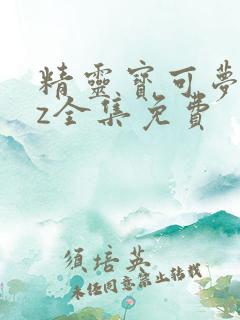 精靈寶可夢
z全集免費
須培英
未经同意禁止转载